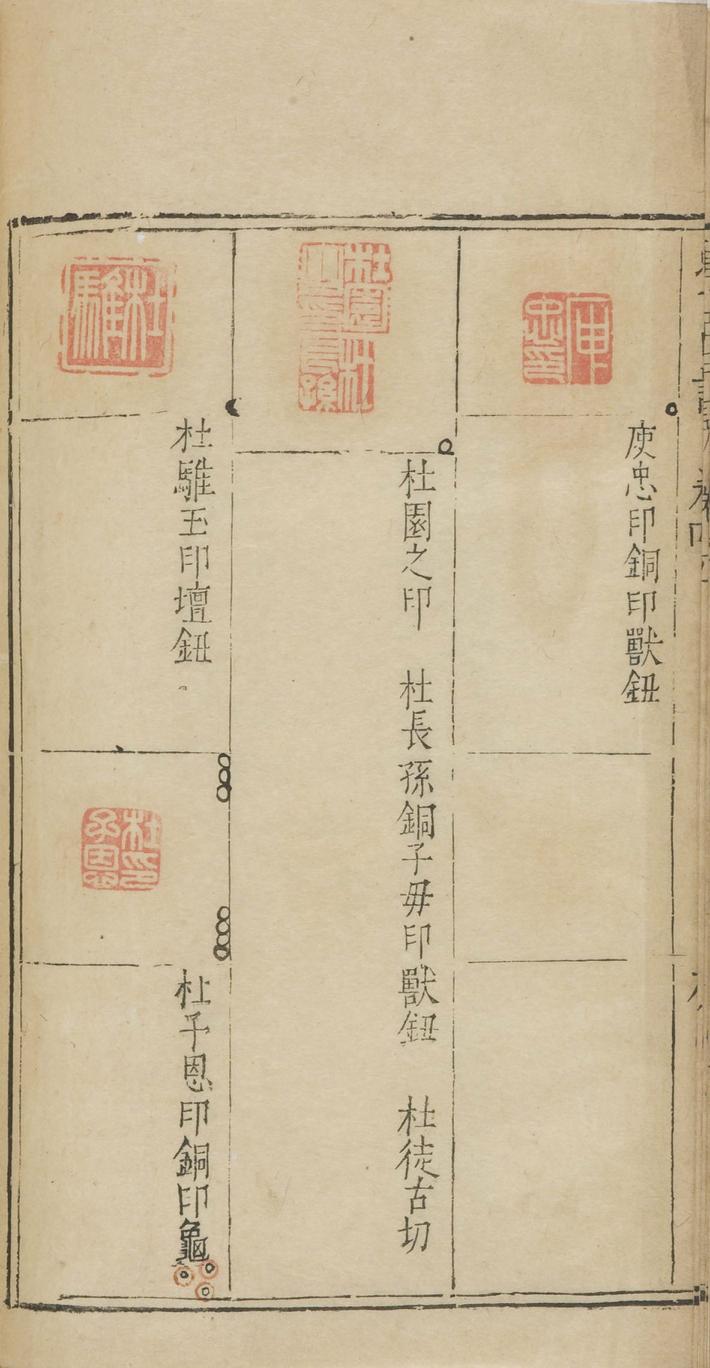 庾忠印銅印獸鈕
杜園之印　杜長孫銅子毋印獸鈕　杜徒古切
杜騅玉印壇鈕
杜子恩印銅印龜